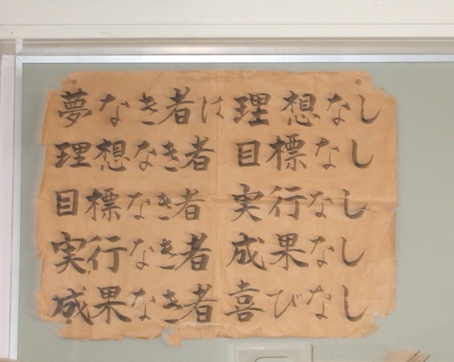 夢なき者は理想なし
理想なき者 目標なし
目標なき者 実行なし
実行なき者 成果なし
成果なき者 喜びなし